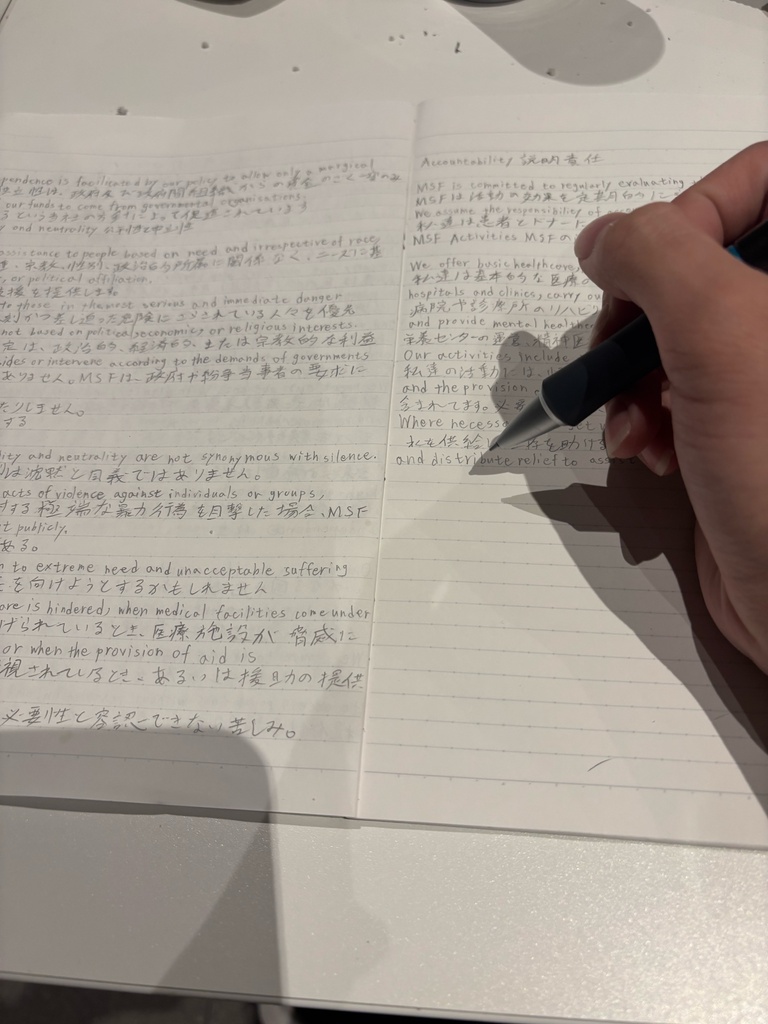 is facilitated by our policy to allow only a marginal
our funds to come from governmental organizations.
and neutrality
assistance to people based on need and irrespective of race,
宗教、性別、政治的所属に関係なく、ニーズに基
or political affiliation.
援を提供します
to those in the most serious and immediate danger
かつ差し迫った危険にさらされている人々を優先
not based on political, economic, or religious interests.
は、政治的、経済的、または宗教的な利益
sides or intervene according to the demands of governments
ありません。MSFは、政府や紛争当事者の要求に
たりしません。
する
and neutrality are not synonymous with silence.
は沈黙と同義ではありません。
acts of violence against individuals or groups,
する極端な暴力行為を目撃した場合、MSF
publicly.
ある。
to extreme need and unacceptable suffering
を向けようとするかもしれません
is hindered, when medical facilities come under
げられているとき、医療施設が脅威に
or when the provision of aid is
視されているとき、あるいは援助の提供
必要性と容認できない苦しみ。
Accountability 説明責任
MSF is committed to regularly evaluating
MSFは活動の効果を定期的に
We assume the responsibility of
私達は患者とドナーに
MSF Activities MSFの
We offer basic healthcare,
私達は基本的な医療
hospitals and clinics, carry ou
病院や診療所のリハビリ
and provide mental healthcare
栄養センターの運営、精神医
Our activities include
私達の活動には、
and the provision
含まれてます。必
Where necess
を供給し 存を助ける
and distribute relief to